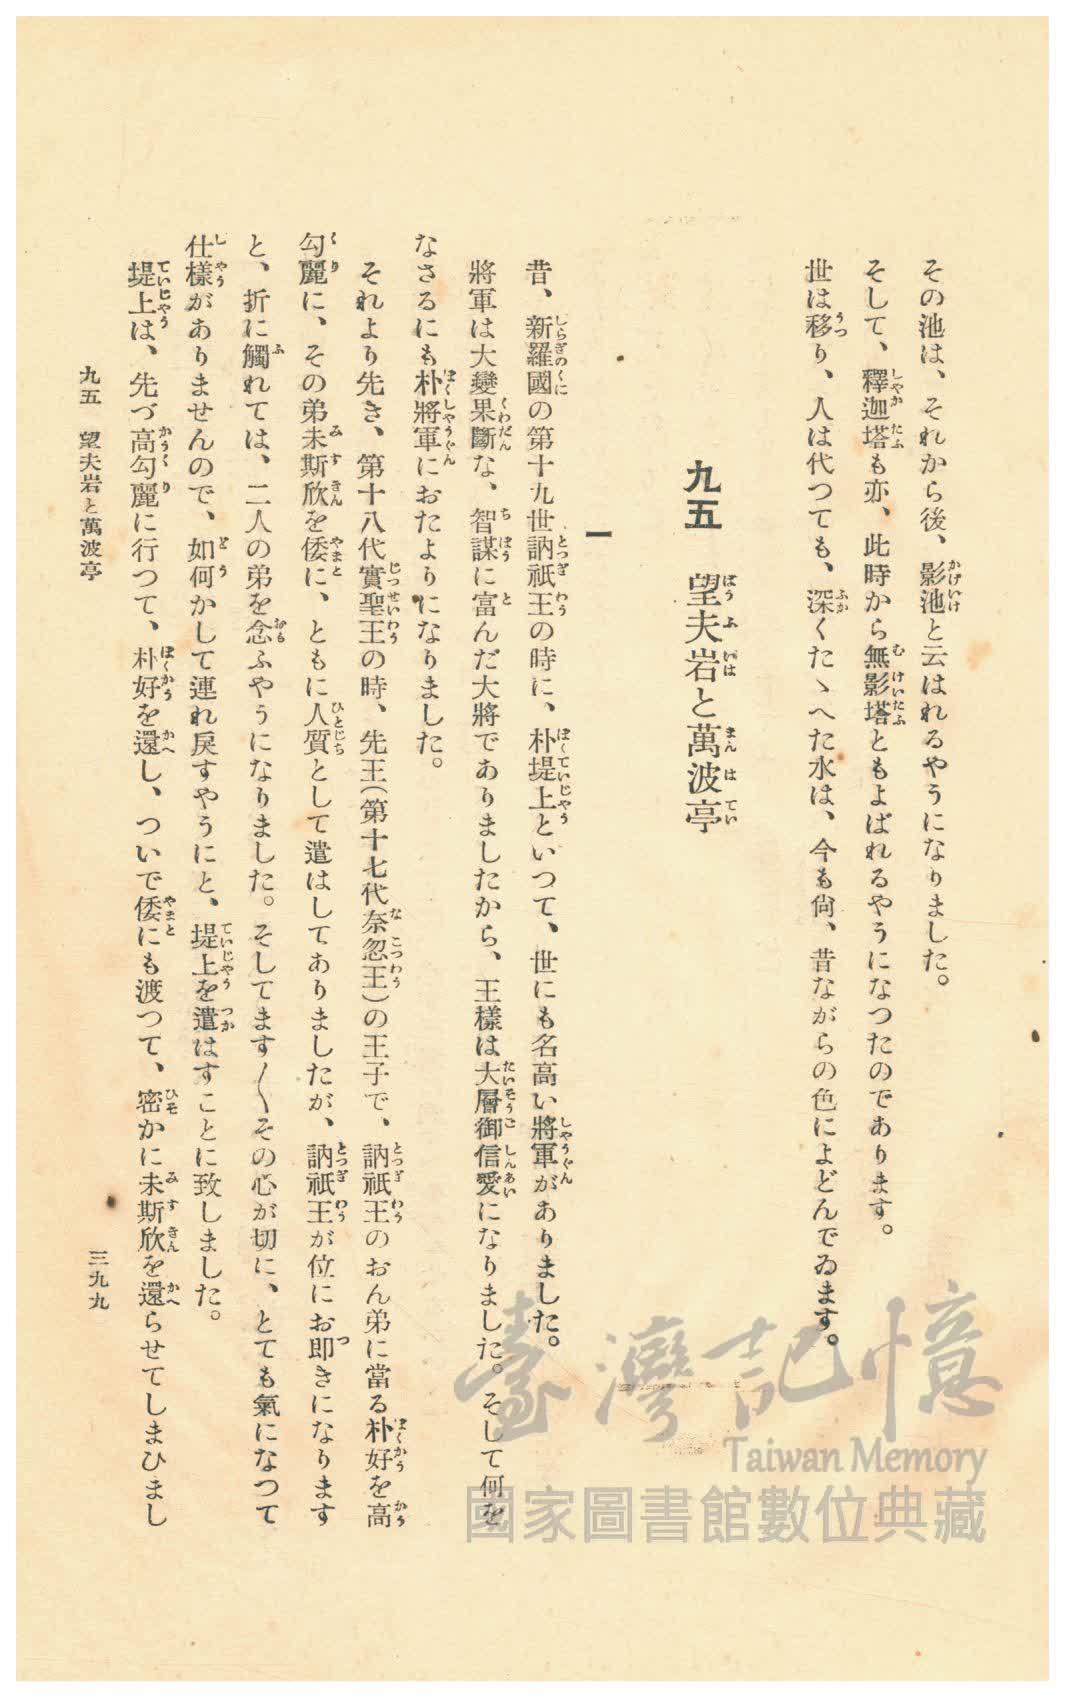 その池は、それから後、影池と云はれるやうになりました。
そして、釋迦塔も亦、此時から無影塔ともよばれるやうになつたのであります。
世は移り、人は代つても、深くたゝへた水は、今も尙、昔ながらの色によどんでゐます。
九五 望夫岩と萬波亭
一
昔、新羅國の第十九世訥祇王の時に、朴堤上といつて、世にも名高い將軍がありました。
將軍は大變果斷な、智謀に富んだ大將でありましたから、王樣は大層御信愛になりました。そして何を
なさるにも朴將軍におたよりになりました。
それより先き、第十八代實聖王の時、先王(第十七代奈忽王)の王子で、訥祇王のおん弟に當る朴好を高
勾麗に、その弟未斯欣を倭に、ともに人質として遣はしてありましたが、訥祇王が位にお卽きになります
と、折に觸れては、二人の弟を念ふやうになりました。そしてます〱その心が切に、とても氣になつて
仕樣がありませんので、如何かして連れ戾すやうにと、堤上を遣はすことに致しました。
堤上は、先づ高勾麗に行つて、朴好を還し、ついで倭にも渡つて、密かに未斯欣を還らせてしまひまし
九五 望夫岩と萬波亭
三九九
臺灣記憶
Taiwan Memory
國家圖書館數位典藏